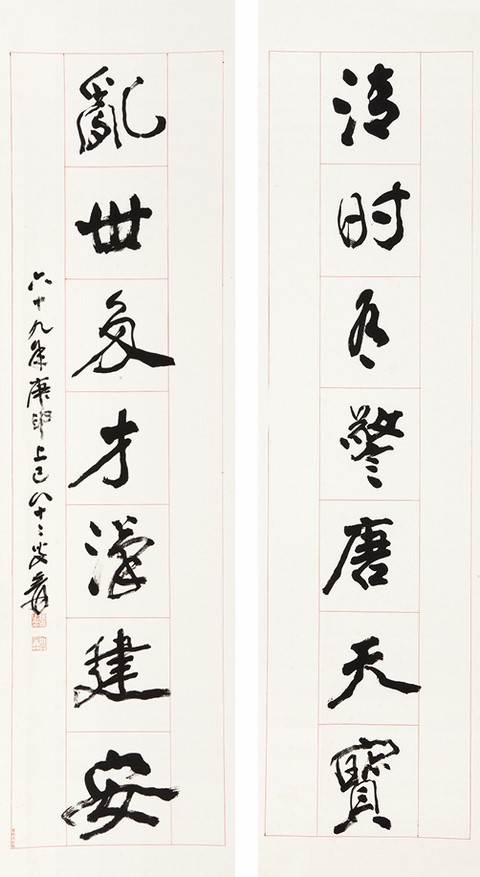 清时警唐天寶
亂世才漢建安
六十九年庚申上巳八十二叟爰